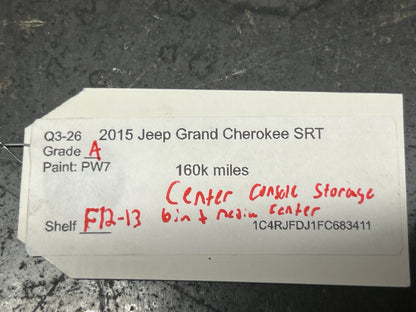 Q3-26 2015 Jeep Grand Cherokee SRT
Grade A
Paint: PW7 160k miles
Center Console Storage
Shelf F12-13 bin & media center
1C4RJFDJ1FC683411